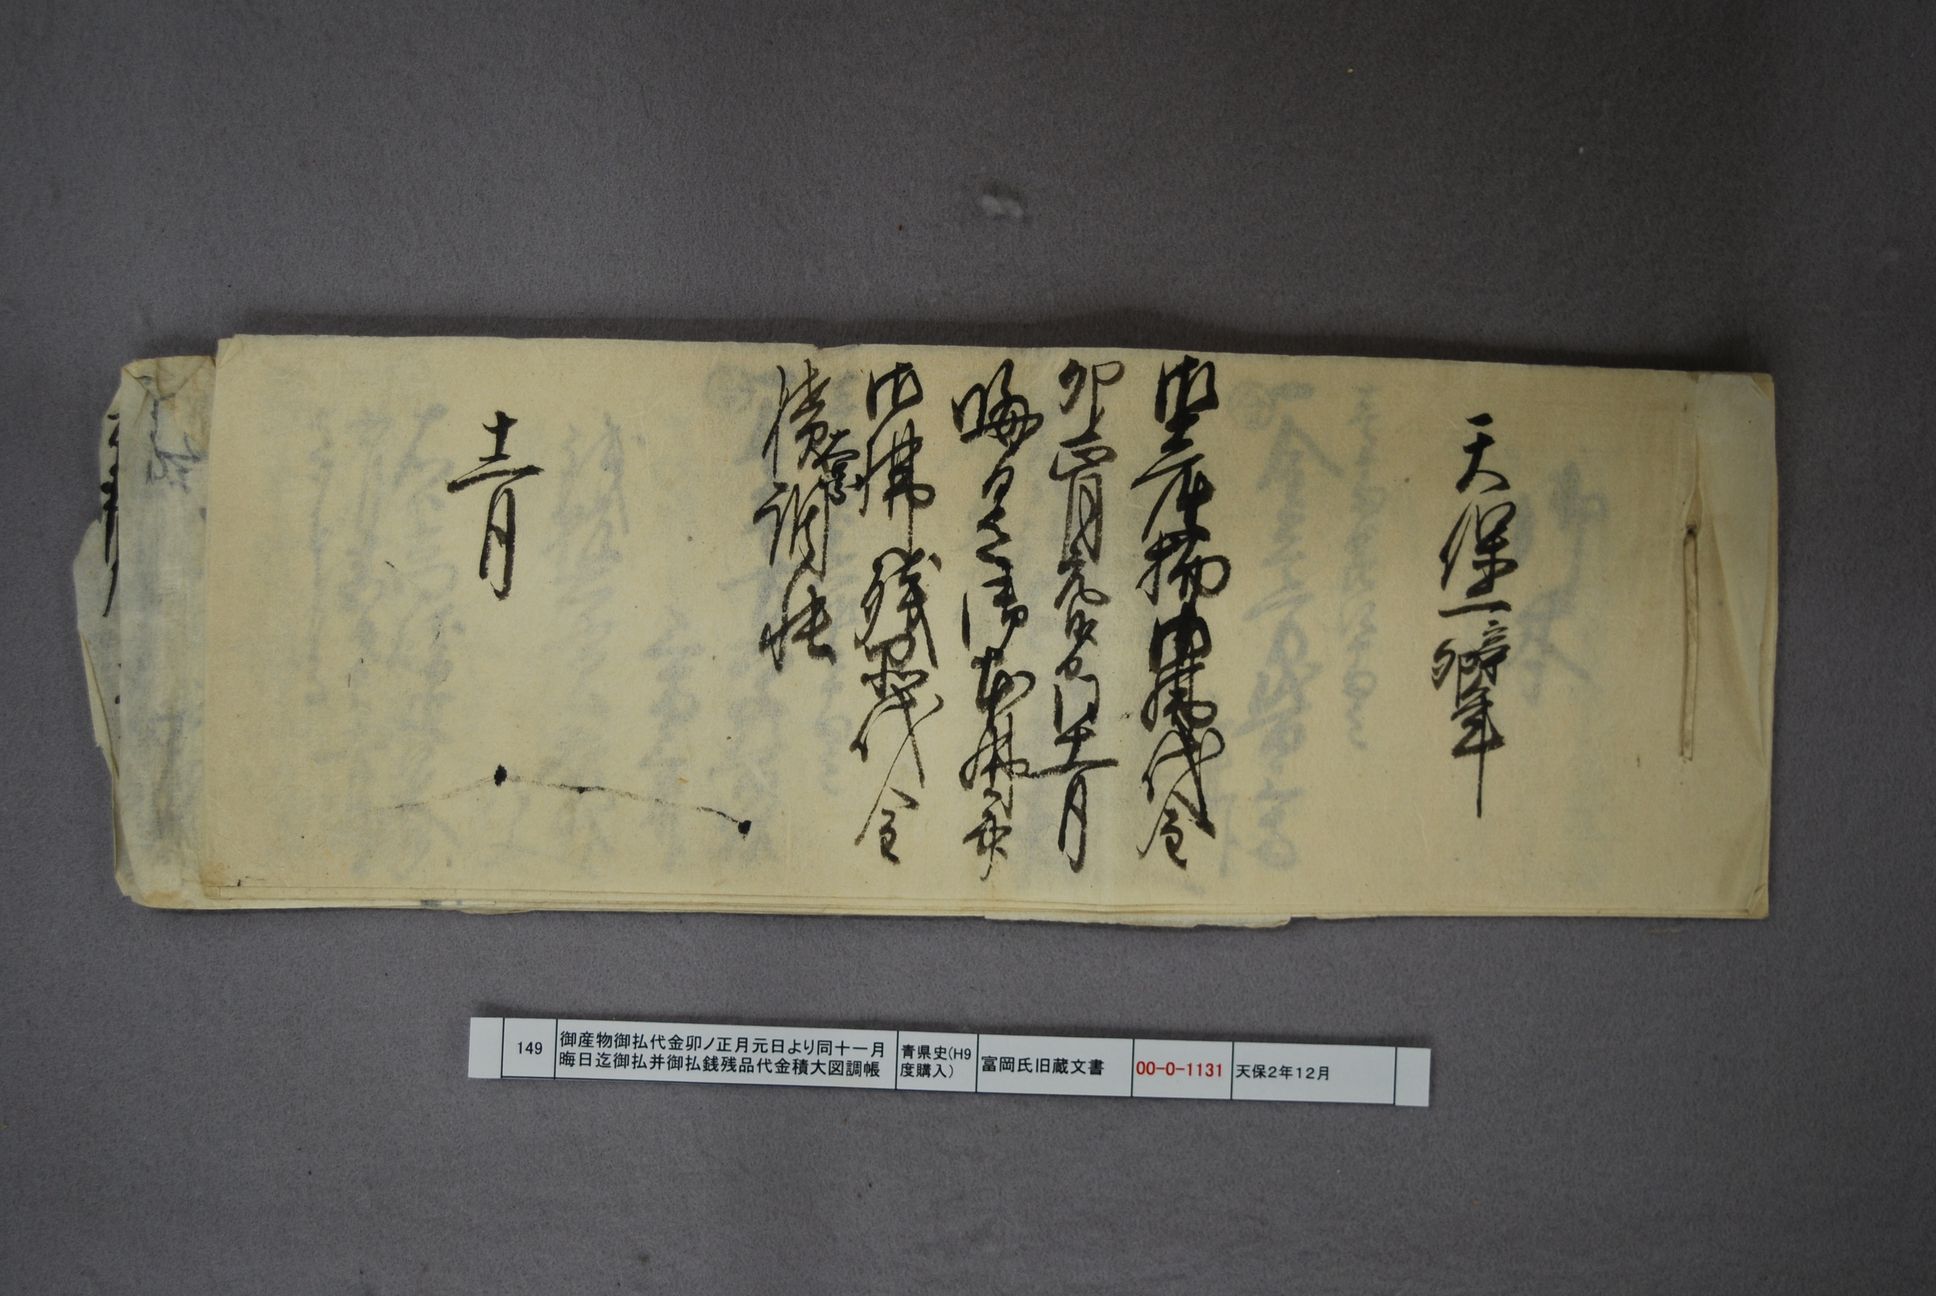 天保二辛卯年
御産物御払代金
卯ノ正月元日ゟ同十一月
晦日迄御払并
御払残品代金
積大図調帳
十二月
149
御産物御払代金卯ノ正月元日より同十一月
晦日迄御払并御払銭残品代金積大図調帳
青県史(H9
度購入)
冨岡氏旧蔵文書
00-0-1131
天保2年12月